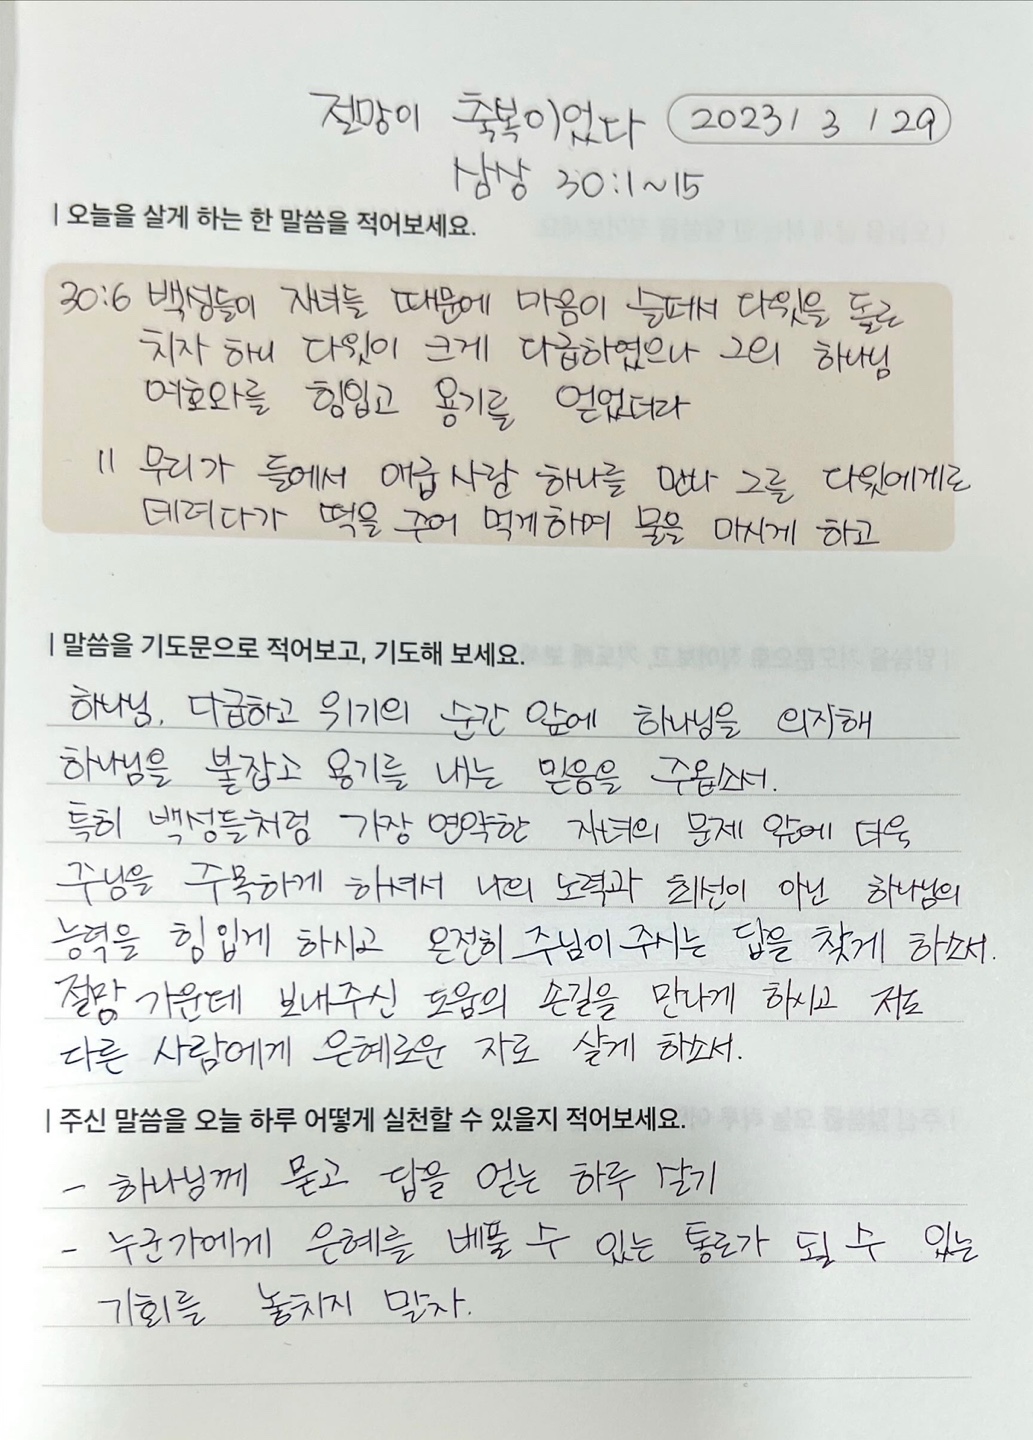 절망이 축복이었다 2023 / 3 / 29
삼상 30:1~15
| 오늘을 살게 하는 한 말씀을 적어보세요.
30:6 백성들이 자녀들 때문에 마음이 슬퍼서 다윗을 돌로
치자 하니 다윗이 크게 다급하였으나 그의 하나님
여호와를 힘입고 용기를 얻었더라
11 무리가 들에서 애굽 사람 하나를 만나 그를 다윗에게로
데려다가 떡을 주어 먹게하며 물을 마시게 하고
| 말씀을 기도문으로 적어보고, 기도해 보세요.
하나님, 다급하고 위기의 순간 앞에 하나님을 의지해
하나님을 붙잡고 용기를 내는 믿음을 주옵소서.
특히 백성들처럼 가장 연약한 자녀의 문제 앞에 더욱
주님을 주목하게 하셔서 나의 노력과 최선이 아닌 하나님의
능력을 힘입게 하시고 온전히 주님이 주시는 답을 찾게 하소서.
절망 가운데 보내주신 도움의 손길을 만나게 하시고 저도
다른 사람에게 은혜로운 자로 살게 하소서.
| 주신 말씀을 오늘 하루 어떻게 실천할 수 있을지 적어보세요.
- 하나님께 묻고 답을 얻는 하루 살기
- 누군가에게 은혜를 베풀 수 있는 통로가 될 수 있는
기회를 놓치지 말자.